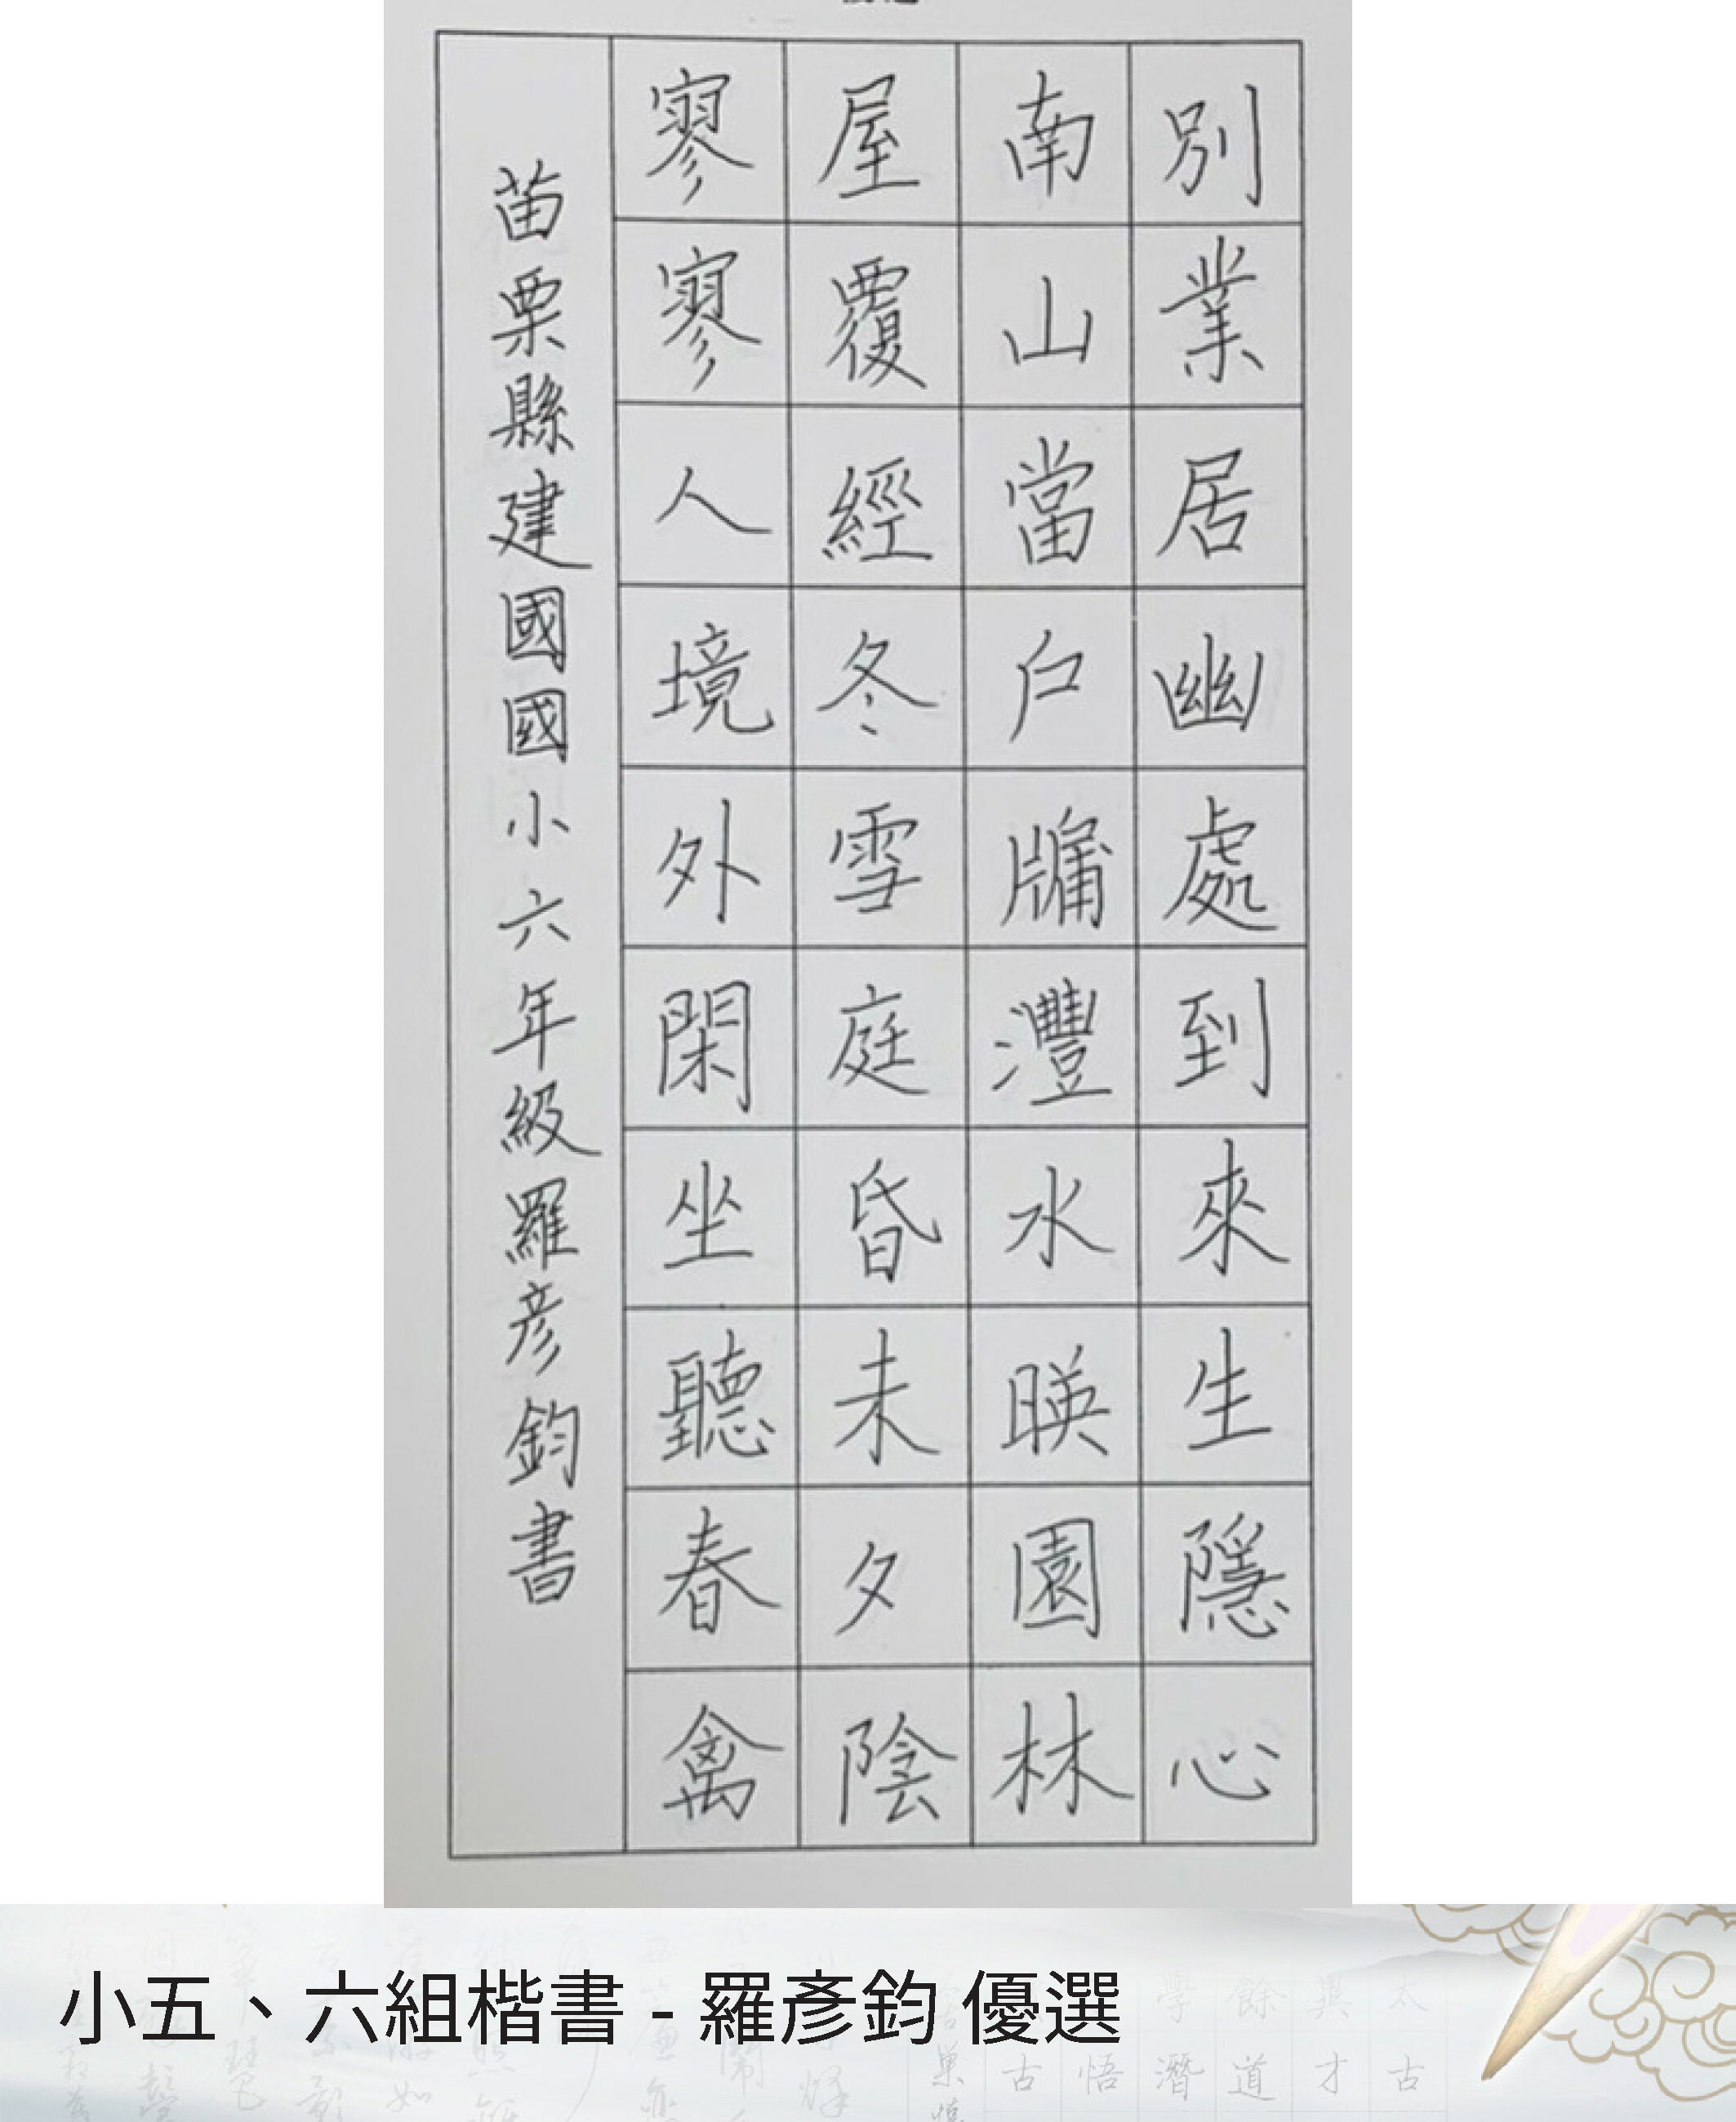 別業居幽處到來生隱心
南山當戶牖灃水映園林
屋覆經冬雪庭昏未夕陰
寥寥人境外閑坐聽春禽
苗栗縣建國國小六年級羅彥鈞書
小五、六組楷書 - 羅彥鈞 優選
學餘與太
古悟潛道才古